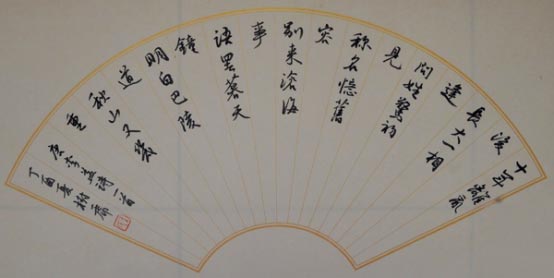 十年離亂
後
長大一相
逢
問姓驚初
見
稱名憶舊
容
別來滄海
事
語罷暮天
鐘
明日巴陵
道
秋山又幾
重
唐李益詩一首
丁酉夏樹齋